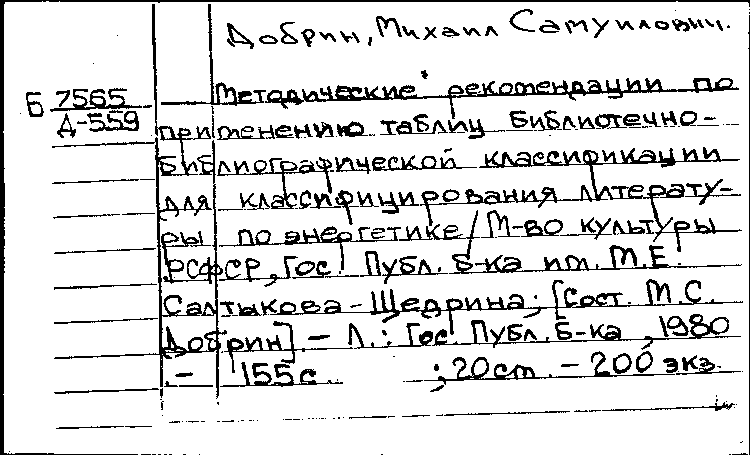 Добрин, Михаил Самуилович.
Б 7565 Методические рекомендации по
Д-559 применению таблиц Библиотечно-
библиографической классификации
для классифицирования литерату-
ры по энергетике / М-во культуры
РСФСР, Гос. Публ. б-ка им. М.Е.
Салтыкова-Щедрина; [Сост. М.С.
Добрин]. – Л.: Гос. Публ. б-ка, 1980
.– 155 с. ; 20 cm. – 200 экз.